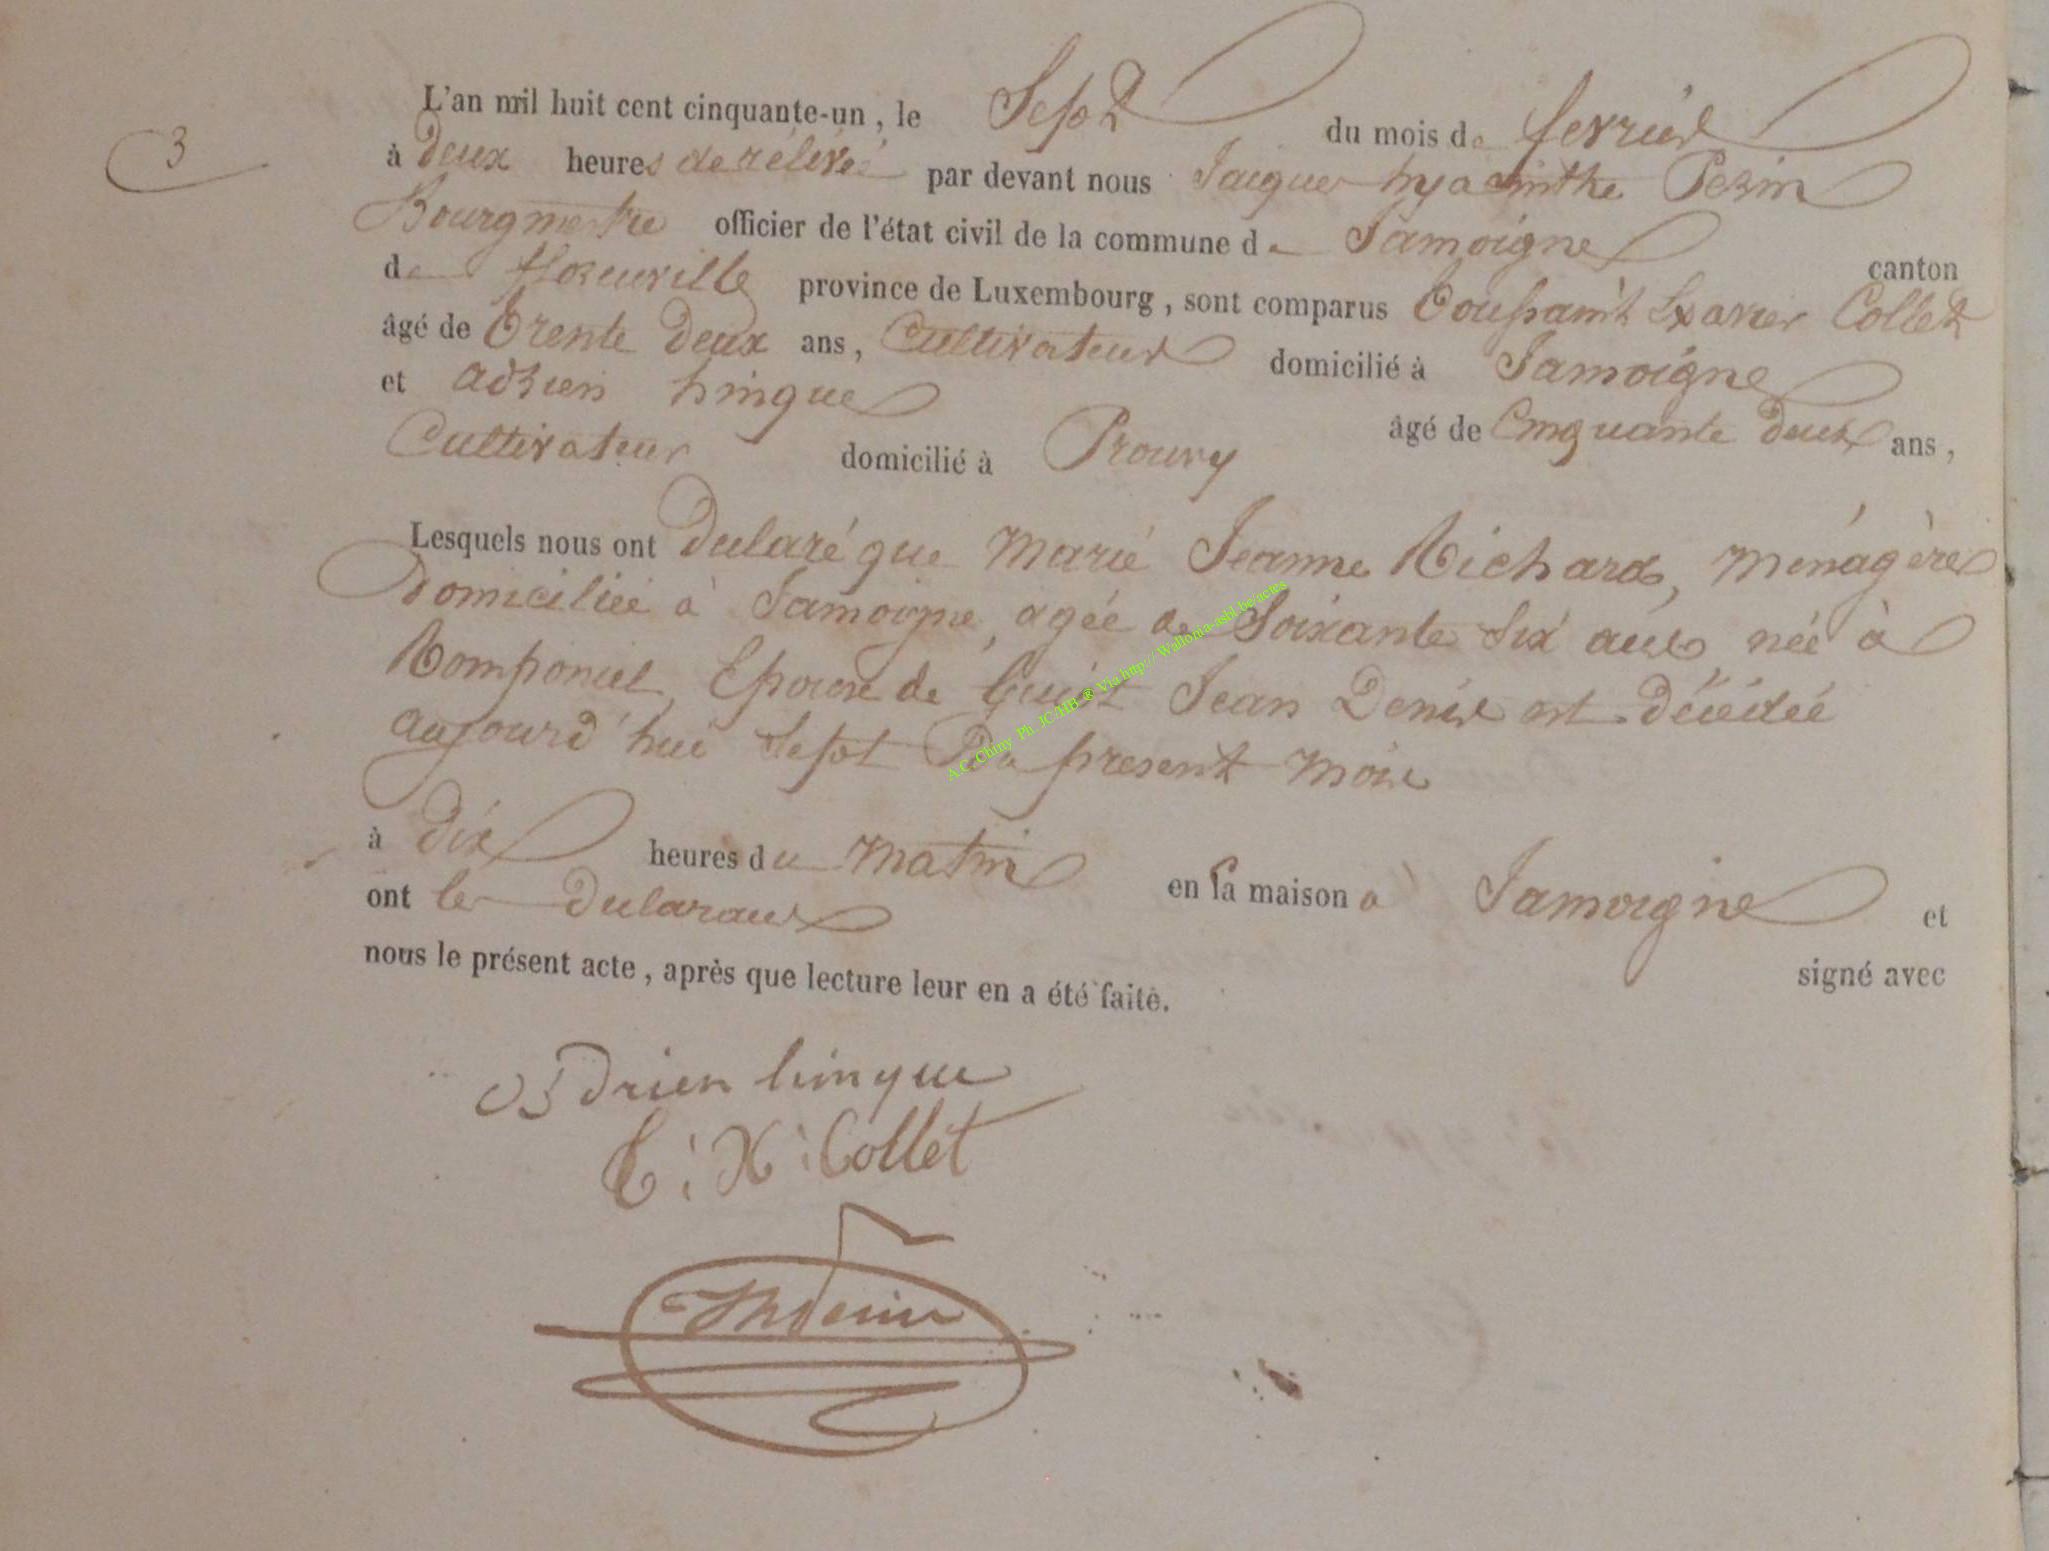 3
L'an mil huit cent cinquante-un, le Sept du mois de fevrier
à Deux heures de rélévée par devant nous Jaique hyacinthe Perin
Bourgmestre officier de l'état civil de la commune de Jamoigne canton
de florenville province de Luxembourg, sont comparus Toussaint Xavier Collet
âgé de Trente Deux ans, Cultivateur domicilié à Jamoigne
et adrien hinque âgé de Cinquante Deux ans,
Cultivateur domicilié à Prouvy
Lesquels nous ont Declaré que Marie Jeanne Richard, Ménagère
Domiciliée à Jamoigne, agée de Soixante Six ans, née à
Romponcel, Epouse de Guiot Jean Denis est Décédée
aujourd'hui Sept Du present mois
à Dix heures du Matin en la maison a Jamoigne et
ont les Declarans signé avec
nous le présent acte, après que lecture leur en a été faite.
Adrien hinque
T: X: Collet
A.C. Chiny Ph. JC/HB ® Via http://Wallonia-asbl.be/actes